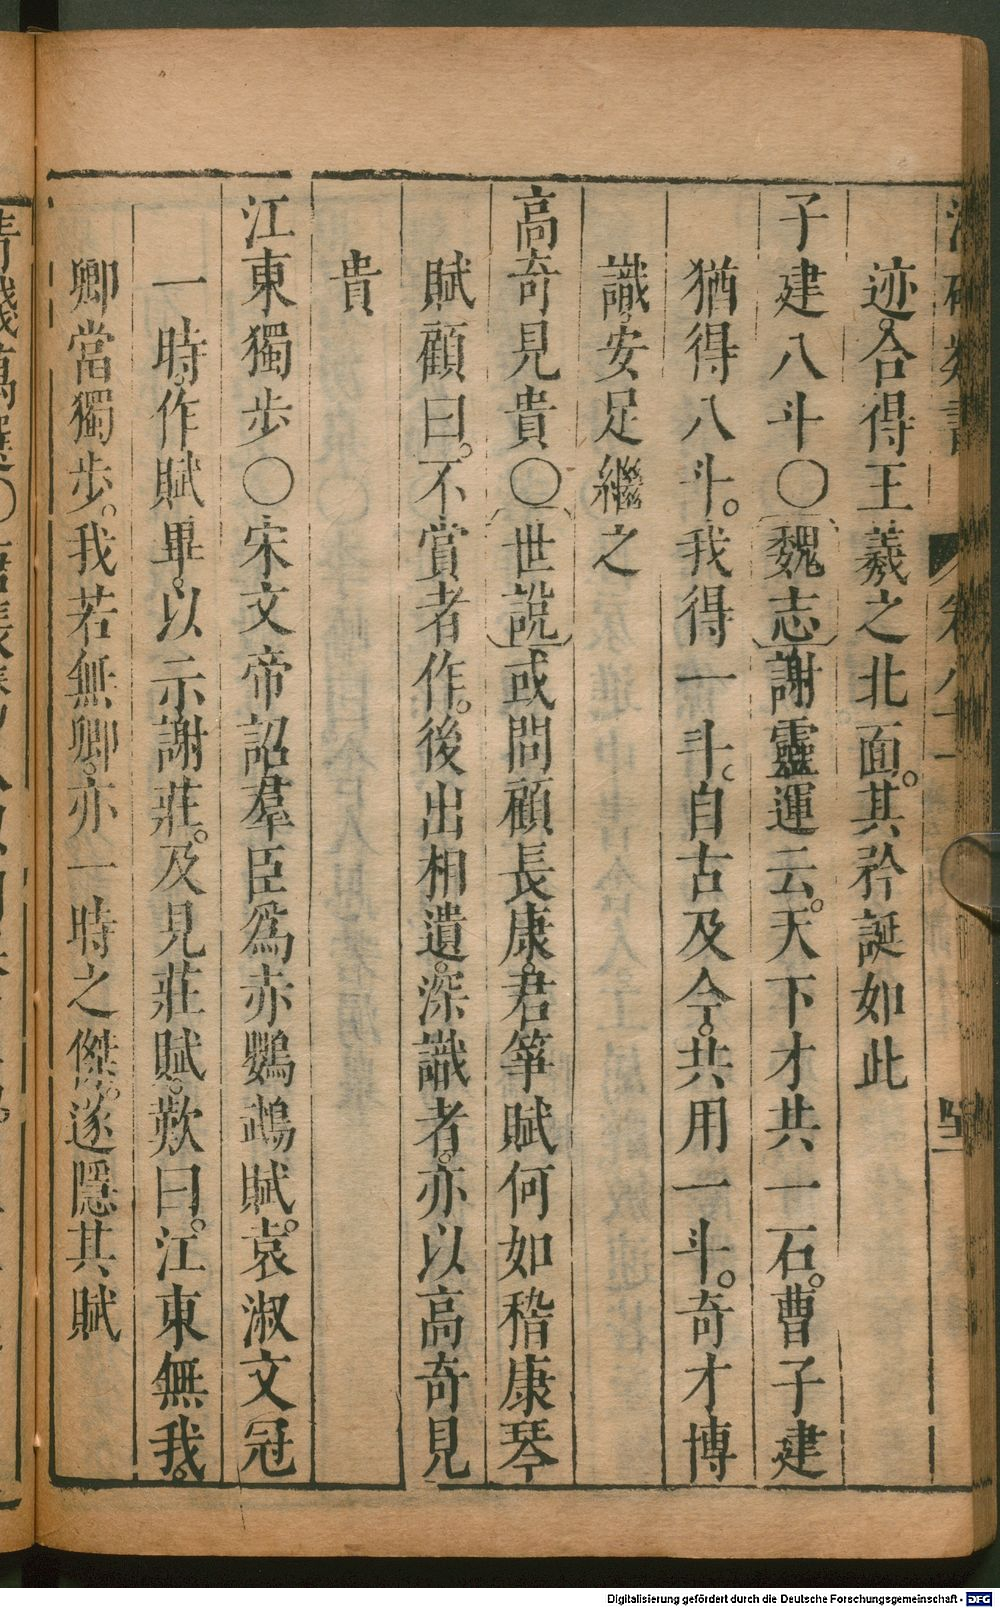 迹。合得王羲之北面。其矜誕如此
子建八斗〇魏志謝靈運云。天下才共一石。曹子建
猶得八斗。我得一斗。自古及今。共用一斗。奇才博
識。安足繼之
高奇見貴〇世説或問顧長康。君筝賦何如稽康琴
賦顧曰。不賞者作。後出相遺。深識者。亦以高奇見
貴
江東獨步〇宋文帝詔羣臣爲赤鸚鵡賦。袁淑文冠
一時。作賦畢。以示謝莊。及見莊賦。歎曰。江東無我。
卿當獨步。我若無卿。亦一時之傑。遂隱其賦
Digitalisierung gefördert durch die Deutsche Forschungsgemeinschaft - DFG